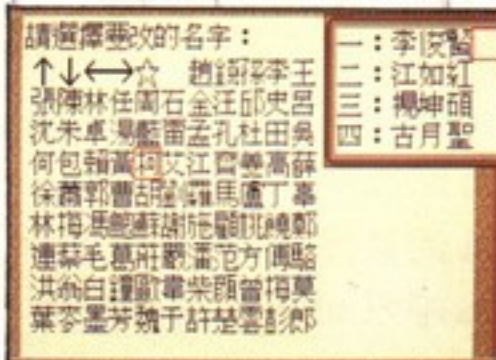 請選擇要改的名字：
↑↓←→☆ 趙錢孫李王
張陳林任周石金汪邱史呂
沈朱卓湯藍雷孟孔杜田吳
何包賴黃柯艾江齊姜高薛
徐蕭郭曹胡劉羅馬盧丁辜
林梅馮鮑蘇謝施顧姚饒鄭
連蔡毛葛莊嚴潘范方傅駱
洪翁白譚歐韋柴顏曾梅莫
葉麥墨芳魏于許楚雲彭郎
一：李俊賢
二：江如紅
三：楊坤碩
四：古月聖